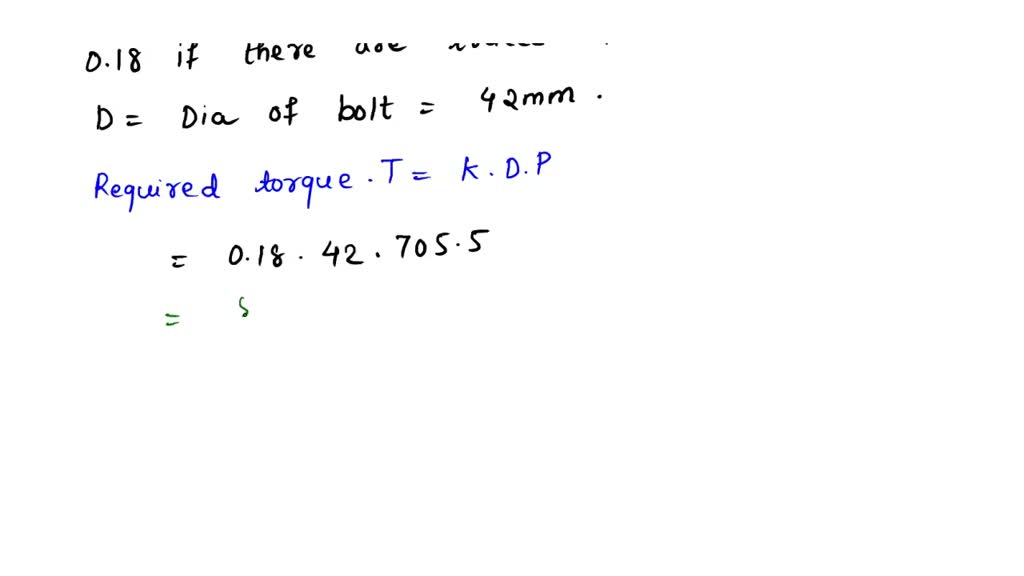 0.18 if there are
D = Dia of bolt = 42mm .
Required torque . T = K . D . P
= 0.18 . 42 . 705.5
=